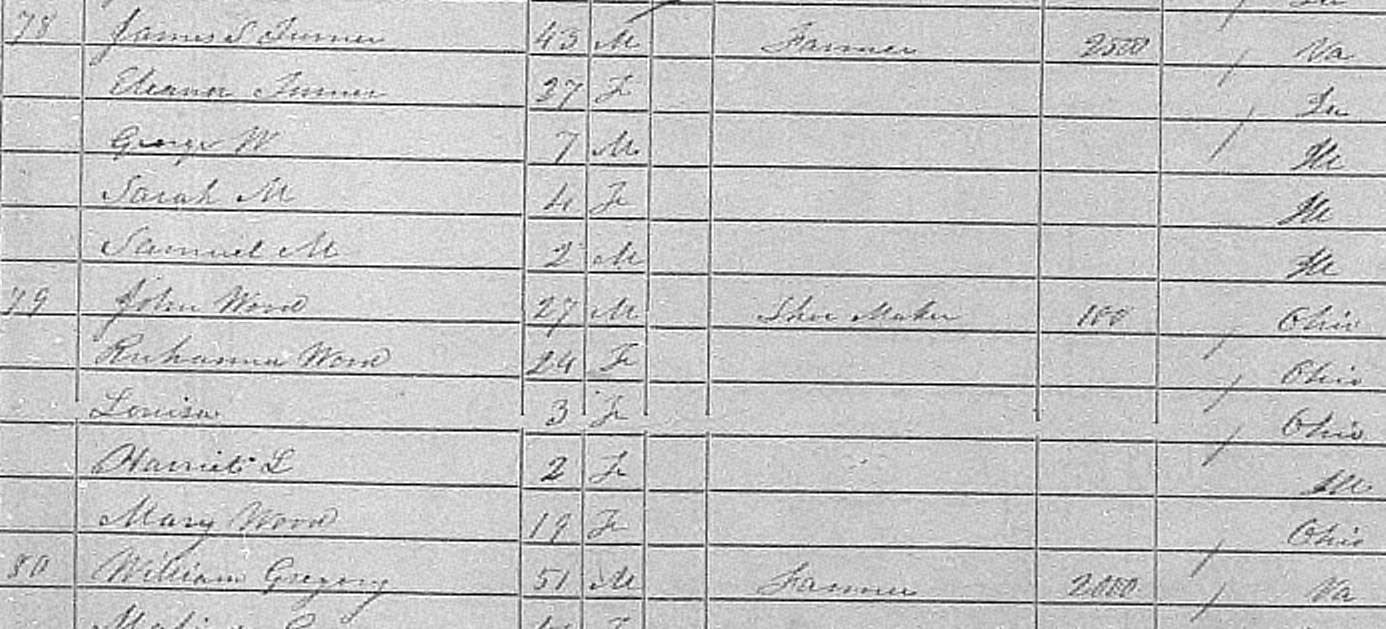 78 James S Turner 43 M Farmer 2500 Va
Eleanor Turner 27 F
George W 7 M Ill
Sarah M 4 F Ill
Samuel M 2 M Ill
79 John Wood 27 M Shoe Maker 100 Ohio
Ruhanna Wood 24 F Ohio
Louisa 3 F Ohio
Harriet L 2 F Ill
Mary Wood 19 F Ohio
80 William Gregory 51 M Farmer 2000 Va